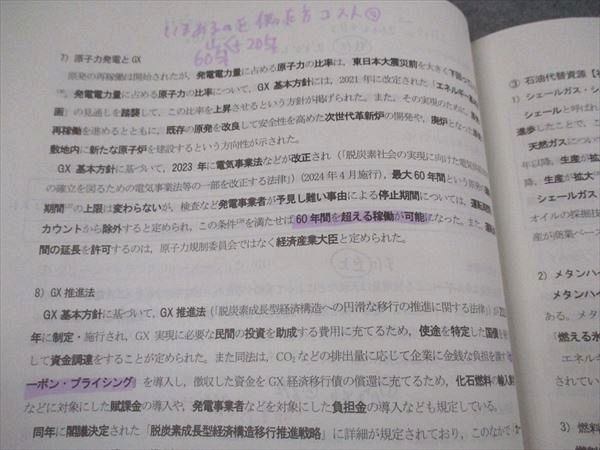 60年
7) 原子力発電とGX
原発の再稼働は開始されたが、発電電力量に占める原子力の比率は、東日本大震災前を大きく下回った
発電電力量に占める原子力の比率について、GX 基本方針には、2021年に改定された「エネルギー基
画」の見通しを踏襲して、この比率を上昇させるという方針が掲げられた。また、その実現のために、
再稼働を進めるとともに、既存の原発を改良して安全性を高めた次世代革新炉の開発や、廃炉となった
敷地内に新たな原子炉を建設するという方向性が示された。
GX 基本方針に基づいて、2023年に電気事業法などが改正され（「脱炭素社会の実現に向けた電気供給
の確立を図るための電気事業法等の一部を改正する法律」）（2024年4月施行）、最大60年間という
期間の上限は変わらないが、検査など発電事業者が予見し難い事由による停止期間については、運転期
カウントから除外すると定められ、この条件を満たせば60年間を超える稼働が可能になった。また、
間の延長を許可するのは、原子力規制委員会ではなく経済産業大臣と定められた。
8) GX 推進法
GX 基本方針に基づいて、GX 推進法（「脱炭素成長型経済構造への円滑な移行の推進に関する法律」）が
年に制定・施行され、GX 実現に必要な民間の投資を助成する費用に充てるため、使途を特定した国債を
して資金調達をすることが定められた。また同法は、CO₂などの排出量に応じて企業に金銭な負担を課す
ーボン・プライシングを導入し、徴収した資金をGX 経済移行債の償還に充てるため、化石燃料の輸入
などに対象にした賦課金の導入や、発電事業者などを対象にした負担金の導入なども規定している。
同年に閣議決定された「脱炭素成長型経済構造移行推進戦略」に詳細が規定されており、このなかで
③ 石油代替資源
1) シェールガス・シ
シェールと呼ばれ
進歩したことで、こ
天然ガスについて
年以降、生産が拡
以降、生産が拡大
シェールガス
オイルの採掘技
産が商業ベース
2) メタンハイ
メタンハイ
ある。メタ
「燃える氷
エネルギ
されてい
3) 燃料